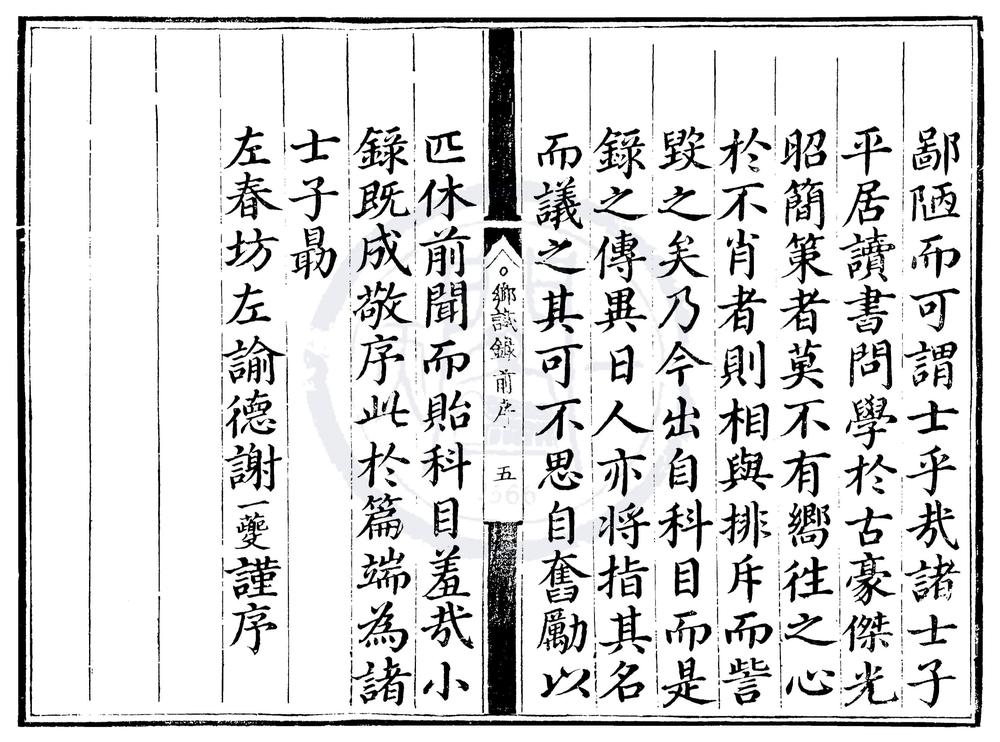 鄙陋而可謂士乎㢤諸士子
平居讀書問學於古豪傑光
昭簡策者莫不有嚮往之心
於不肖者則相與排斥而訾
毀之矣乃今出自科目而是
錄之傳異日人亦將指其名
而議之其可不思自奮勵以
鄉試錄前序
五
匹休前聞而貽科目羞㢤小
錄既成敬序此於篇端為諸
士子勗
左春坊左諭德謝一夔謹序